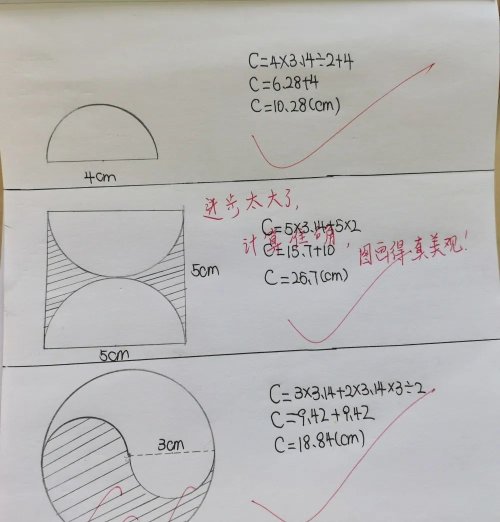 C=4×3.14÷2+4
C=6.28+4
C=10.28(cm)
4cm
进步太大了,
计算准确,
图画得真美观!
C=5×3.14+5×2
C=15.7+10
C=25.7(cm)
5cm
5cm
C=3×3.14+2×3.14×3÷2
C=9.42+9.42
C=18.84(cm)
3cm